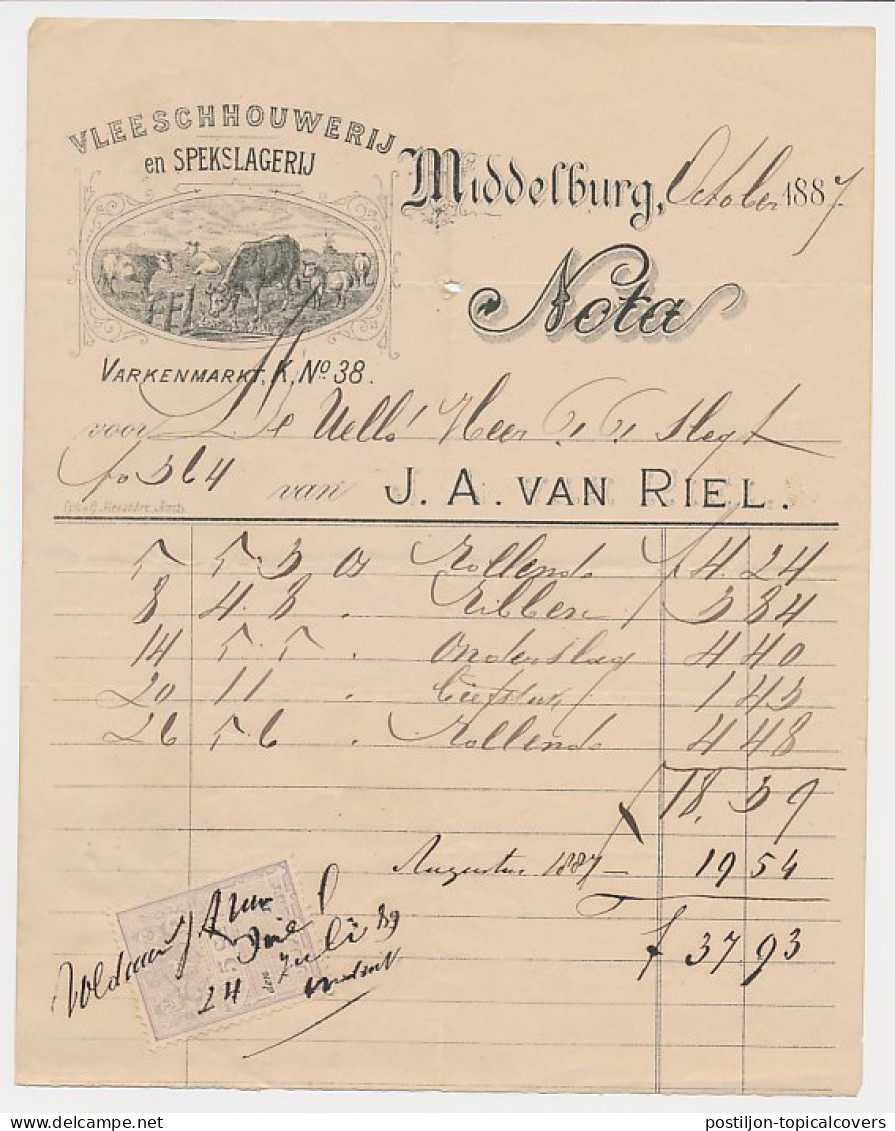 VLEESCHHOUWERIJ
en SPEKSLAGERIJ
Middelburg, October 1887.
Nota
VARKENMARKT, K, No 38.
voor De Heer
fo 364
van J. A. VAN RIEL.
5 5.3 Rollende f 4.24
8 4.8 . Ribben 3 84
14 5.5 . Onderslag 4 40
20 11 . 1 43
26 5.6 . Rollende 4 48
f 18.39
Augustus 1887 19 54
f 37.93
Voldaan
24 Juli 89
postiljon-topicalcovers